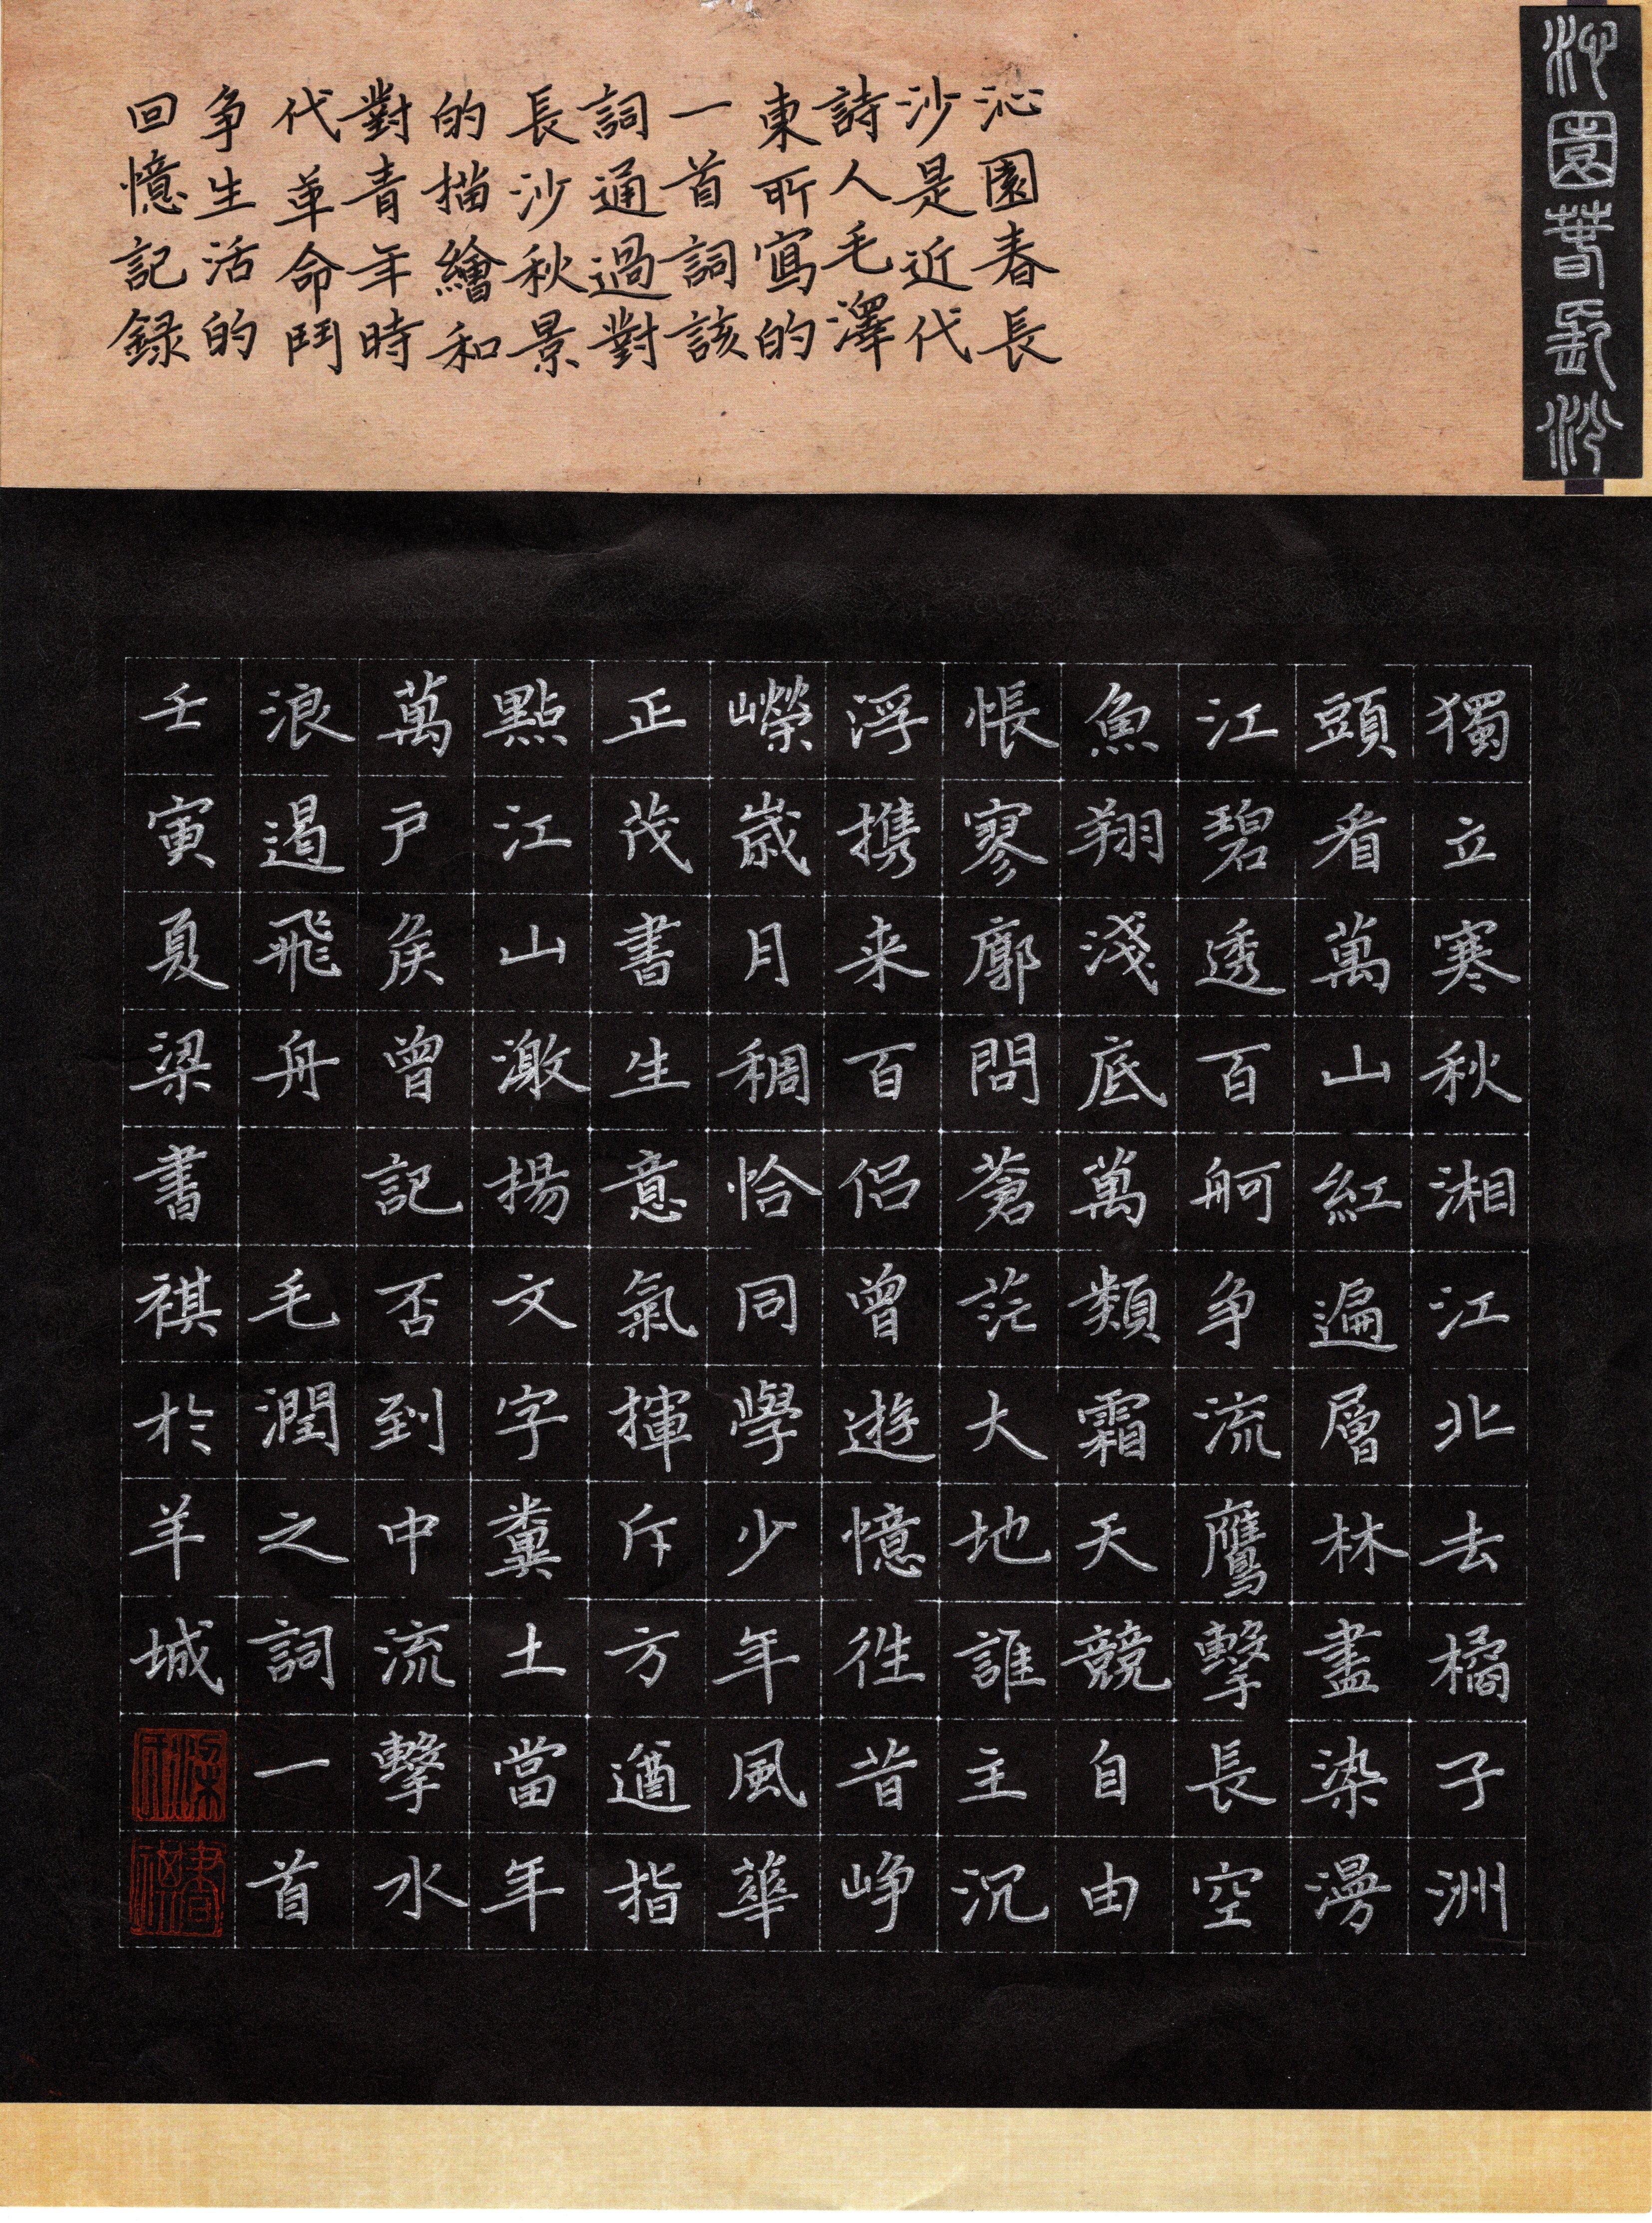 沁園春長沙
沁園春長
沙是近代
詩人毛澤
東所寫的
一首詞該
詞通過對
長沙秋景
的描繪和
對青年時
代革命鬥
争生活的
回憶記錄
獨立寒秋湘江北去橘子洲
頭看萬山紅遍層林盡染漫
江碧透百舸争流鷹擊長空
魚翔淺底萬類霜天競自由
悵寥廓問蒼茫大地誰主沉
浮携来百侣曾遊憶往昔崢
嶸歲月稠恰同學少年風華
正茂書生意氣揮斥方遒指
點江山激揚文字糞土當年
萬户侯曾記否到中流擊水
浪遏飛舟 毛潤之詞一首
壬寅夏梁書祺於羊城
書祺